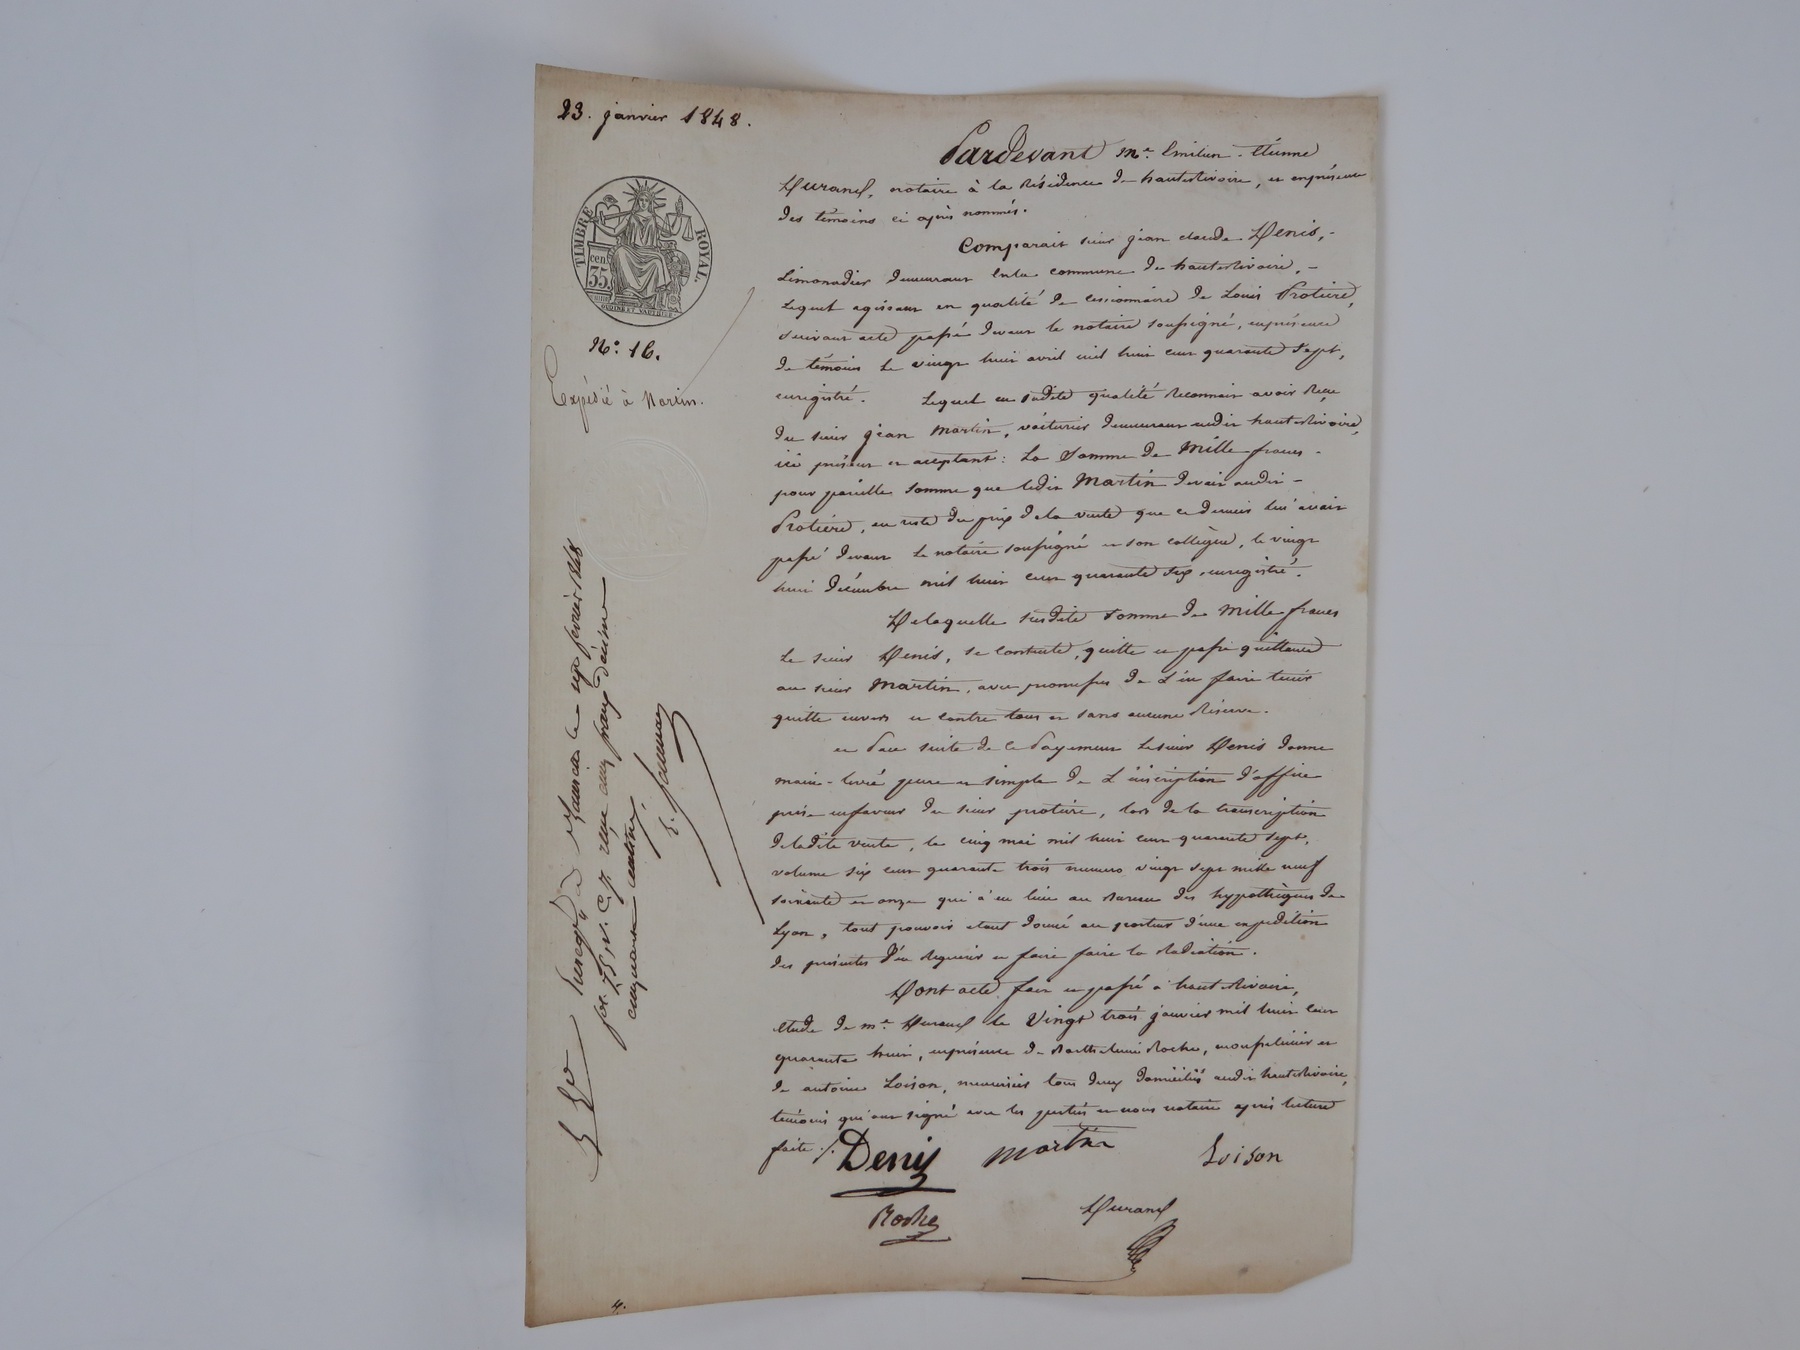 23. janvier 1848.
TIMBRE ROYAL.
cen.
35.
N.º 16.
Expédié à Martin.
Pardevant M.e Emilien Etienne
Durand, notaire à la Résidence de hauterivoire, et enprésence
des témoins ci après nommés.
Comparait sieur jean claude Denis,
Limonadier demeurant en la commune de hauterivoire,
Lequel agissant en qualité de cessionnaire de Louis Protière,
suivant acte passé devant le notaire soussigné, enprésence
de témoins le vingt huit avril mil huit cent quarante sept,
enregistré. Lequel en sadite qualité Reconnait avoir Reçu
du sieur jean Martin, voiturier demeurant audit hauterivoire,
ici présent et acceptant : La Somme de Mille francs
pour pareille somme que ledit Martin devait audit
Protière, en reste du prix de la vente que ce dernier lui avait
passé devant le notaire soussigné et son collègue, le vingt
huit décembre mil huit cent quarante six, enregistré.
De laquelle susdite somme de Mille francs
Le sieur Denis, se contente, quitte et passe quittance
au sieur Martin, avec promesse de L'en faire tenir
quitte envers et contre tous et sans aucune Réserve.
et Par suite de ce Payement Le sieur Denis donne
main-levée pure et simple de L'inscription d'office
prise enfaveur du sieur protière, lors de la transcription
deladite vente, le cinq mai mil huit cent quarante sept,
volume six cent quarante trois numero vingt sept mille neuf
soixante et onze qui a eu lieu au Bureau des hypothèques de
Lyon, tout pouvoir étant donné au porteur d'une expédition
des présentes d'en Requérir et faire faire la Radiation.
Dont acte, fait et passé à hauterivoire,
étude de m.e Durand le Vingt trois janvier mil huit cent
quarante huit, enprésence de Barthelemi Roche,
de antoine Loison, menuisier tous deux domiciliés audit hauterivoire,
témoins qui ont signé avec les parties et nous notaire après lecture
faite ./.
Denis Martin Loison
Roche Durand
Enregistré à le sept février 1848
fol. 75, V. C. 7. reçu cinq francs décime
cinquante centimes
4.